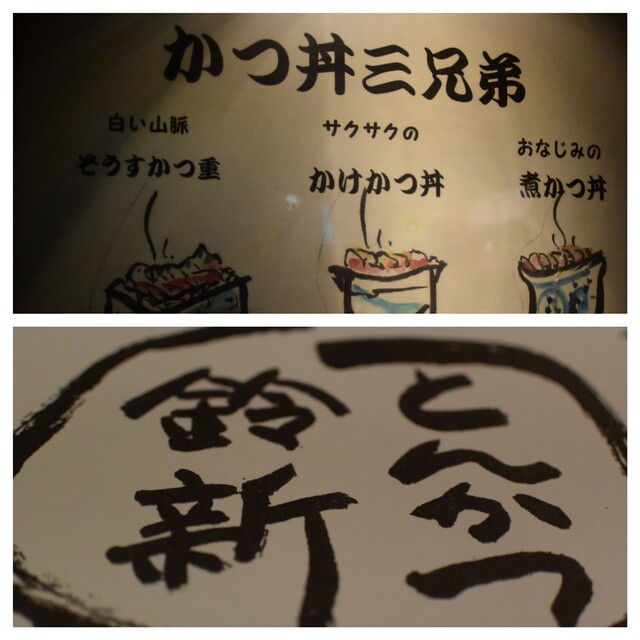 かつ丼三兄弟
白い山脈
そうすかつ重
サクサクの
かけかつ丼
おなじみの
煮かつ丼
とんかつ
鈴新